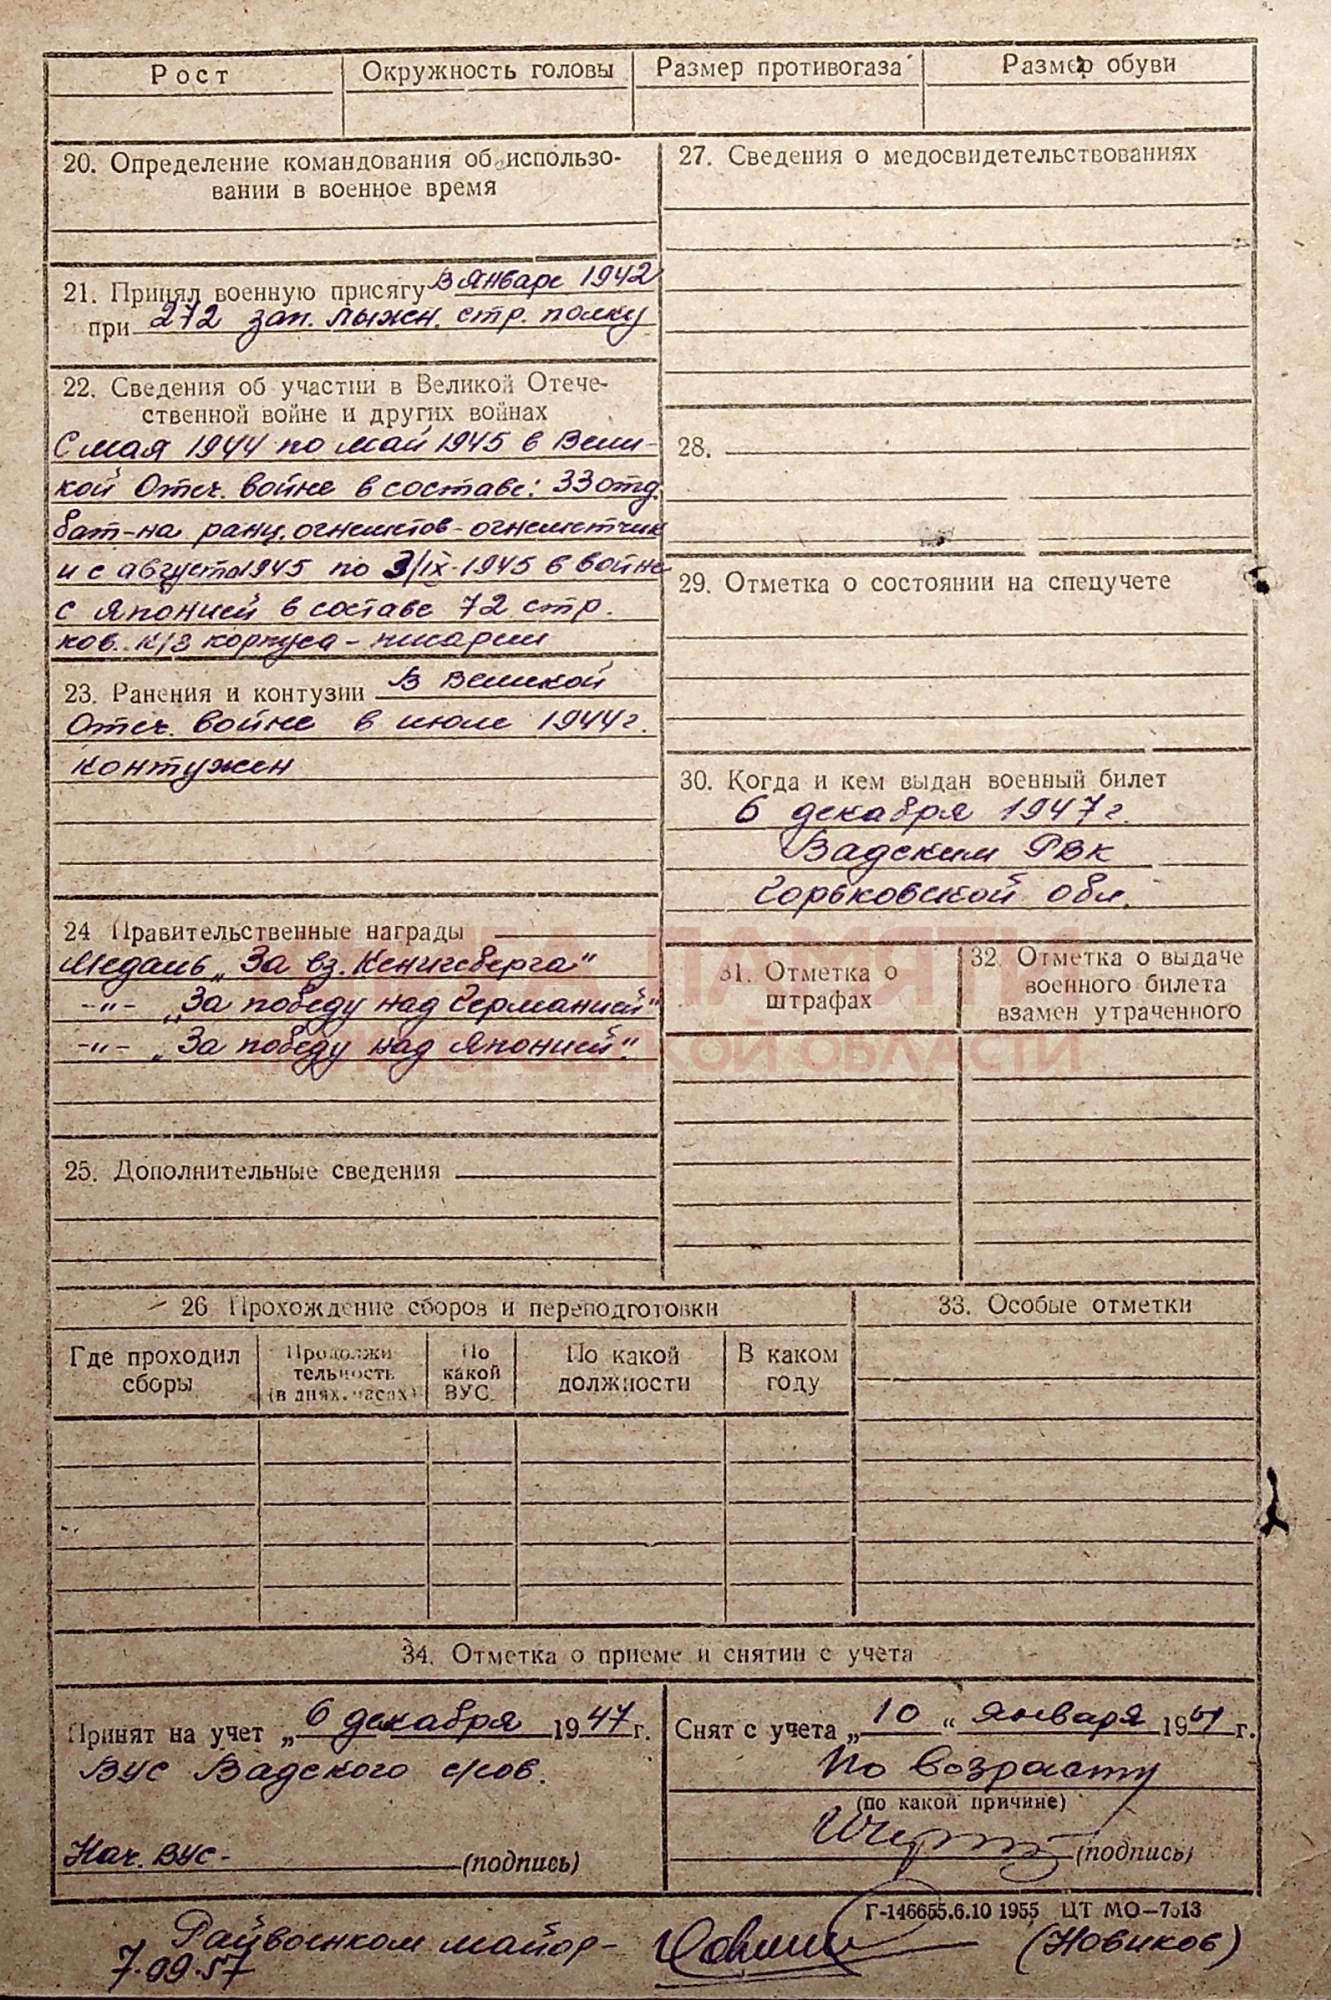 Рост
Окружность головы
Размер противогаза
Размер обуви
20. Определение командования об использо-
вании в военное время
21. Принял военную присягу В январе 1942
при 272 зап. лыжн. стр. полку
22. Сведения об участии в Великой Отече-
ственной войне и других войнах
С мая 1944 по май 1945 в Вели-
кой Отеч. войне в составе: 33 отд.
бат-на ранц. огнеметов - огнеметчик
и с августа 1945 по 3/IX-1945 в войне
с Японией в составе 72 стр.
ков. корпуса - писарем
23. Ранения и контузии В Великой
Отеч. войне в июле 1944 г.
контужен
24 Правительственные награды
Медаль „За вз. Кенигсберга"
-"- „За победу над Германией"
-"- „За победу над Японией".
25. Дополнительные сведения
26 Прохождение сборов и переподготовки
Где проходил
сборы
Продолжи
тельность
(в днях, часах)
По
какой
ВУС
По какой
должности
В каком
году
27. Сведения о медосвидетельствованиях
28.
29. Отметка о состоянии на спецучете
30. Когда и кем выдан военный билет
6 декабря 1947 г.
Вадским РВК
Горьковской обл.
31. Отметка о
штрафах
32. Отметка о выдаче
военного билета
взамен утраченного
КНИГА ПАМЯТИ
НИЖЕГОРОДСКОЙ ОБЛАСТИ
33. Особые отметки
34. Отметка о приеме и снятии с учета
Принят на учет „6 декабря 1947 г.
ВУС Вадского с/сов.
Нач. ВУС- (подпись)
Снят с учета „10" января 1961 г.
По возрасту
(по какой причине)
(подпись)
Г-146655.6.10 1955 ЦТ МО-7513
Райвоенком майор- (Новиков)
7.09.57